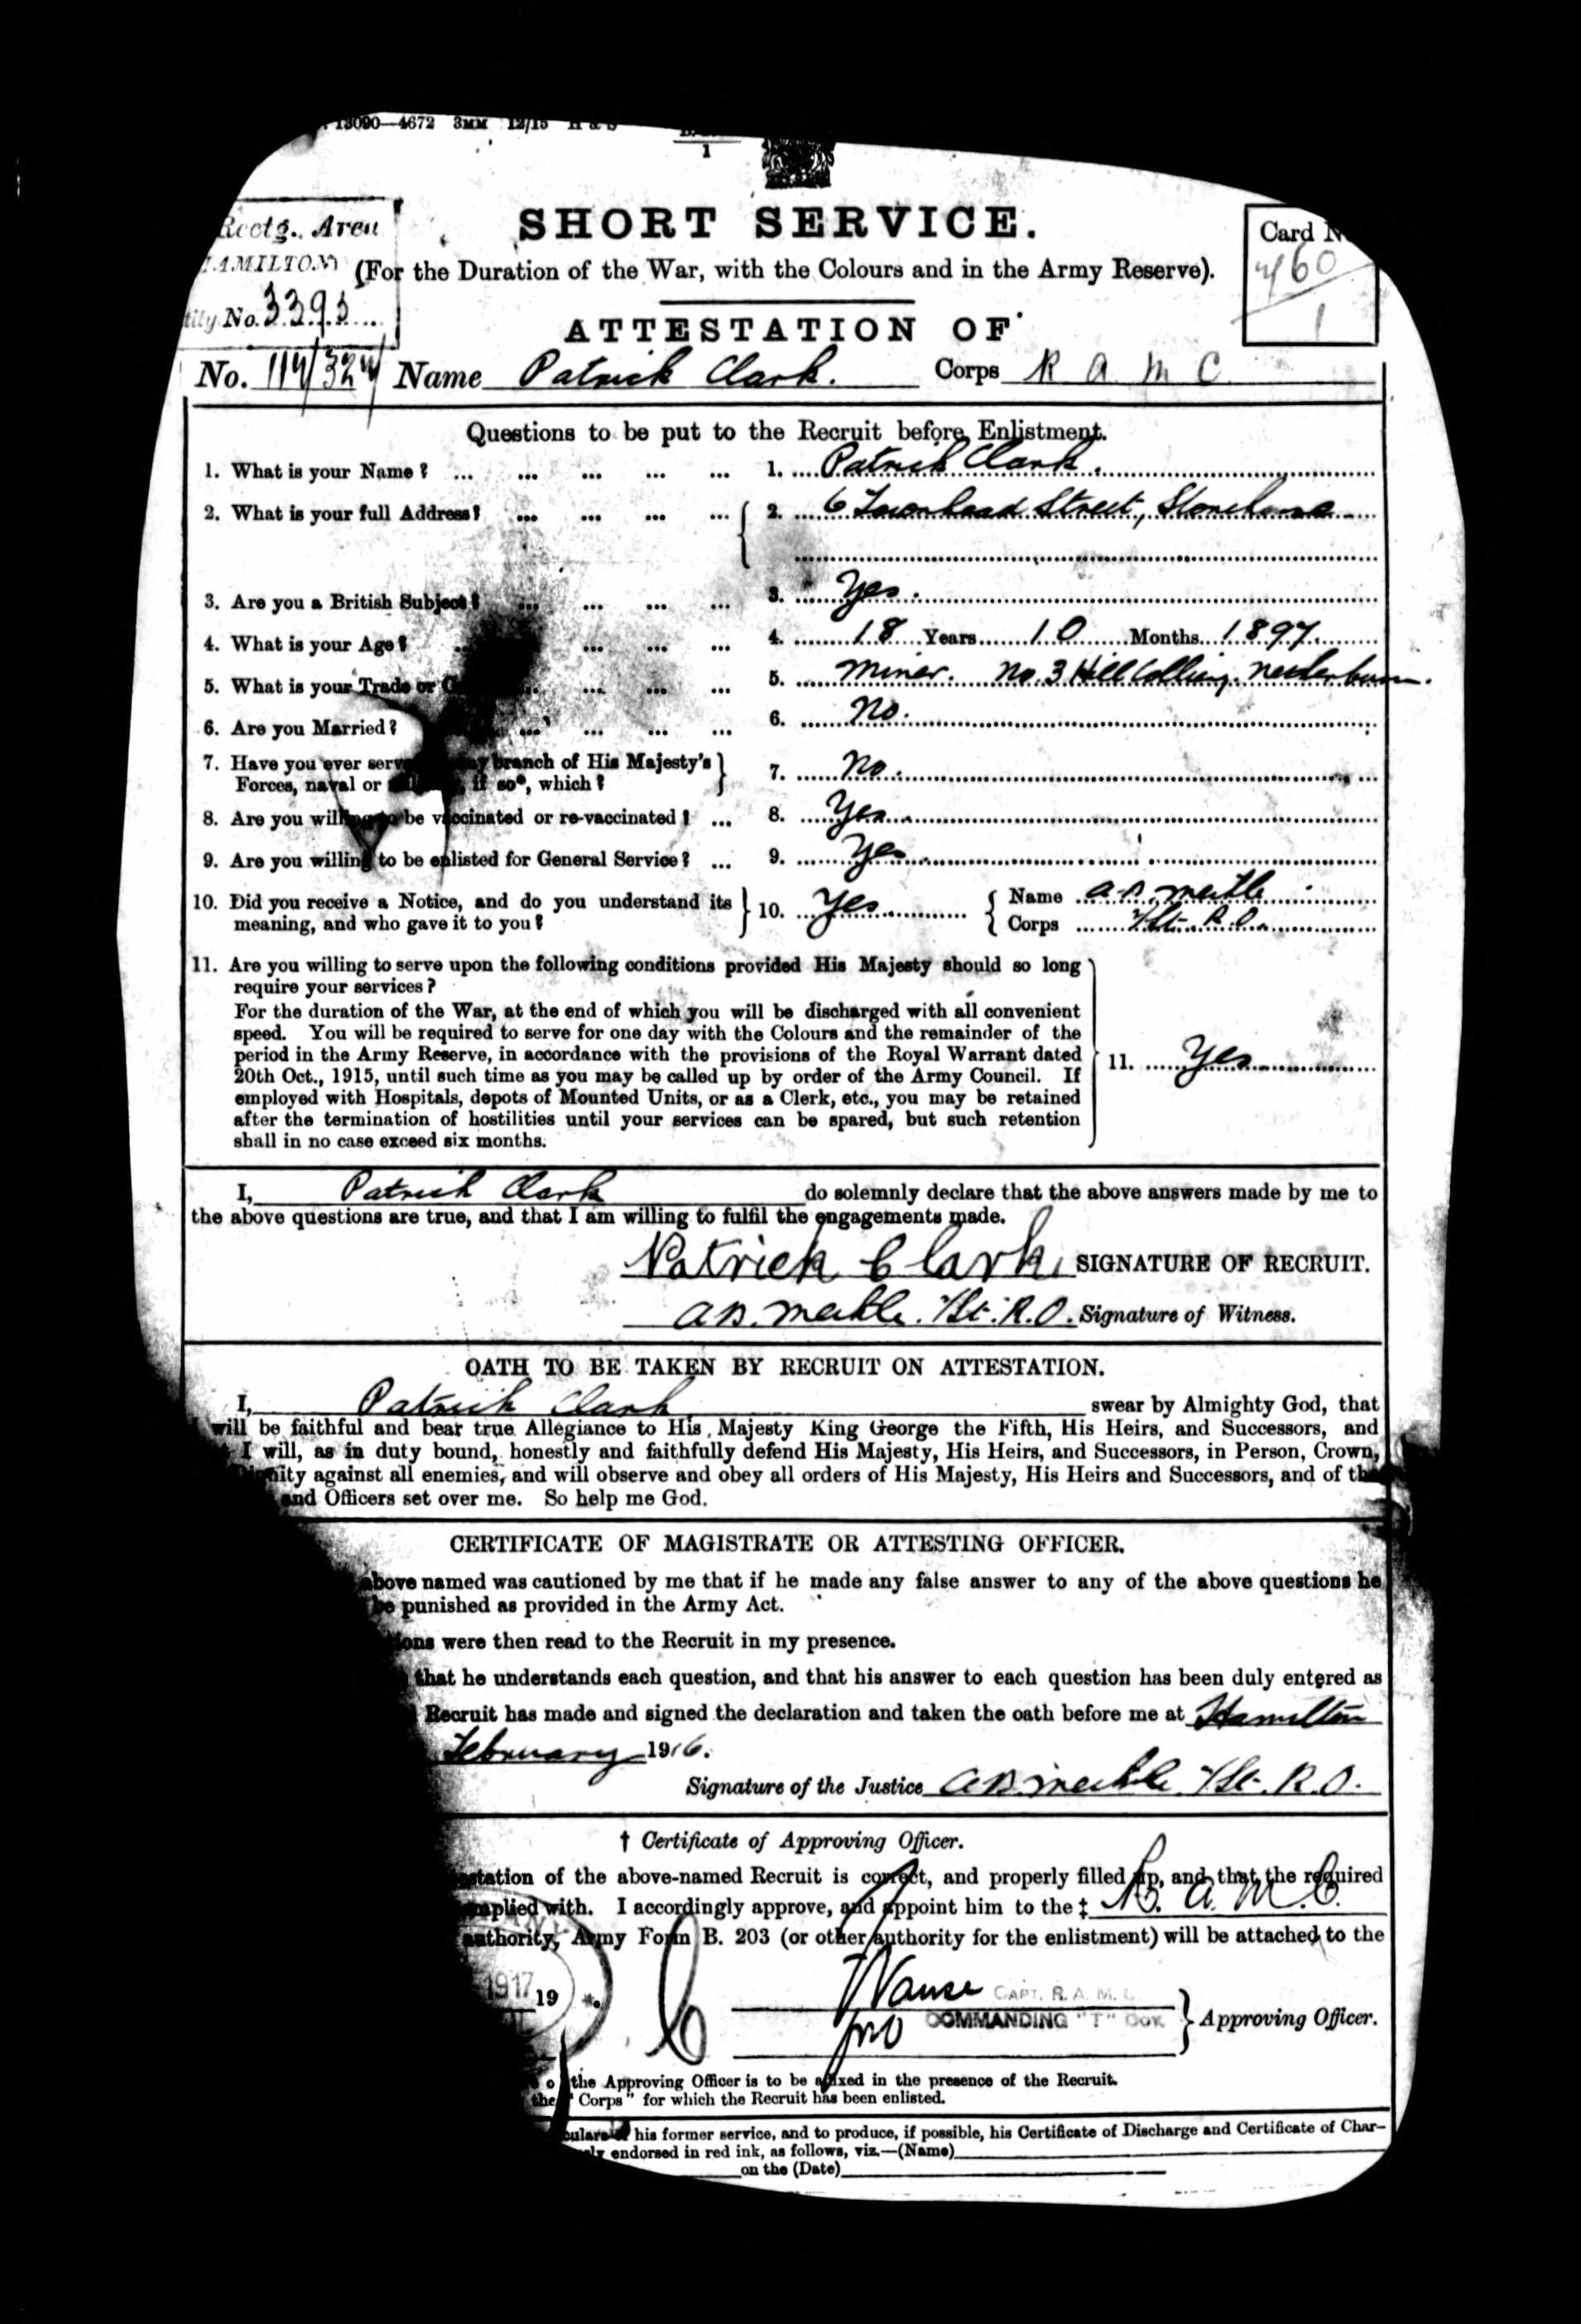 13090—4672 3MM 12/15 H & S
1
Rectg. Area
HAMILTON
No. 3393
SHORT SERVICE.
(For the Duration of the War, with the Colours and in the Army Reserve).
Card No
460
1
ATTESTATION OF
No. 114/324 Name Patrick Clark. Corps R A M C
Questions to be put to the Recruit before Enlistment.
1. What is your Name? ... ... ... ... ... 1. Patrick Clark.
2. What is your full Address? ... ... ... ... 2. 6 Townhead Street, Stonehouse
3. Are you a British Subject? ... ... ... 3. Yes.
4. What is your Age? ... ... ... 4. 18 Years 10 Months 1897.
5. What is your Trade or ... ... ... 5. Miner. No. 3 Hill Colliery. Netherburn.
6. Are you Married? ... ... ... ... 6. No.
7. Have you ever branch of His Majesty's
Forces, naval or if so*, which? 7. No.
8. Are you willing to be vaccinated or re-vaccinated? ... 8. Yes.
9. Are you willing to be enlisted for General Service? ... 9. Yes
10. Did you receive a Notice, and do you understand its
meaning, and who gave it to you? 10. Yes Name A. B. Meikle
Corps R.O.
11. Are you willing to serve upon the following conditions provided His Majesty should so long
require your services?
For the duration of the War, at the end of which you will be discharged with all convenient
speed. You will be required to serve for one day with the Colours and the remainder of the
period in the Army Reserve, in accordance with the provisions of the Royal Warrant dated
20th Oct., 1915, until such time as you may be called up by order of the Army Council. If
employed with Hospitals, depots of Mounted Units, or as a Clerk, etc., you may be retained
after the termination of hostilities until your services can be spared, but such retention
shall in no case exceed six months.
11. Yes
I, Patrick Clark do solemnly declare that the above answers made by me to
the above questions are true, and that I am willing to fulfil the engagements made.
Patrick Clark SIGNATURE OF RECRUIT.
A. B. Meikle. R.O. Signature of Witness.
OATH TO BE TAKEN BY RECRUIT ON ATTESTATION.
I, Patrick Clark swear by Almighty God, that
will be faithful and bear true Allegiance to His Majesty King George the Fifth, His Heirs, and Successors, and
I will, as in duty bound, honestly and faithfully defend His Majesty, His Heirs, and Successors, in Person, Crown,
against all enemies, and will observe and obey all orders of His Majesty, His Heirs and Successors, and of the
and Officers set over me. So help me God.
CERTIFICATE OF MAGISTRATE OR ATTESTING OFFICER.
above named was cautioned by me that if he made any false answer to any of the above questions he
be punished as provided in the Army Act.
were then read to the Recruit in my presence.
that he understands each question, and that his answer to each question has been duly entered as
Recruit has made and signed the declaration and taken the oath before me at Hamilton
February 1916.
Signature of the Justice A. B. Meikle R.O.
† Certificate of Approving Officer.
of the above-named Recruit is correct, and properly filled up, and that the required
with. I accordingly approve, and appoint him to the ‡ R. A. M. C.
authority, Army Form B. 203 (or other authority for the enlistment) will be attached to the
1917 19
CAPT. R. A. M. C
COMMANDING "T" Coy. Approving Officer.
the Approving Officer is to be affixed in the presence of the Recruit.
the "Corps" for which the Recruit has been enlisted.
his former service, and to produce, if possible, his Certificate of Discharge and Certificate of Char-
endorsed in red ink, as follows, viz.—(Name)
on the (Date)